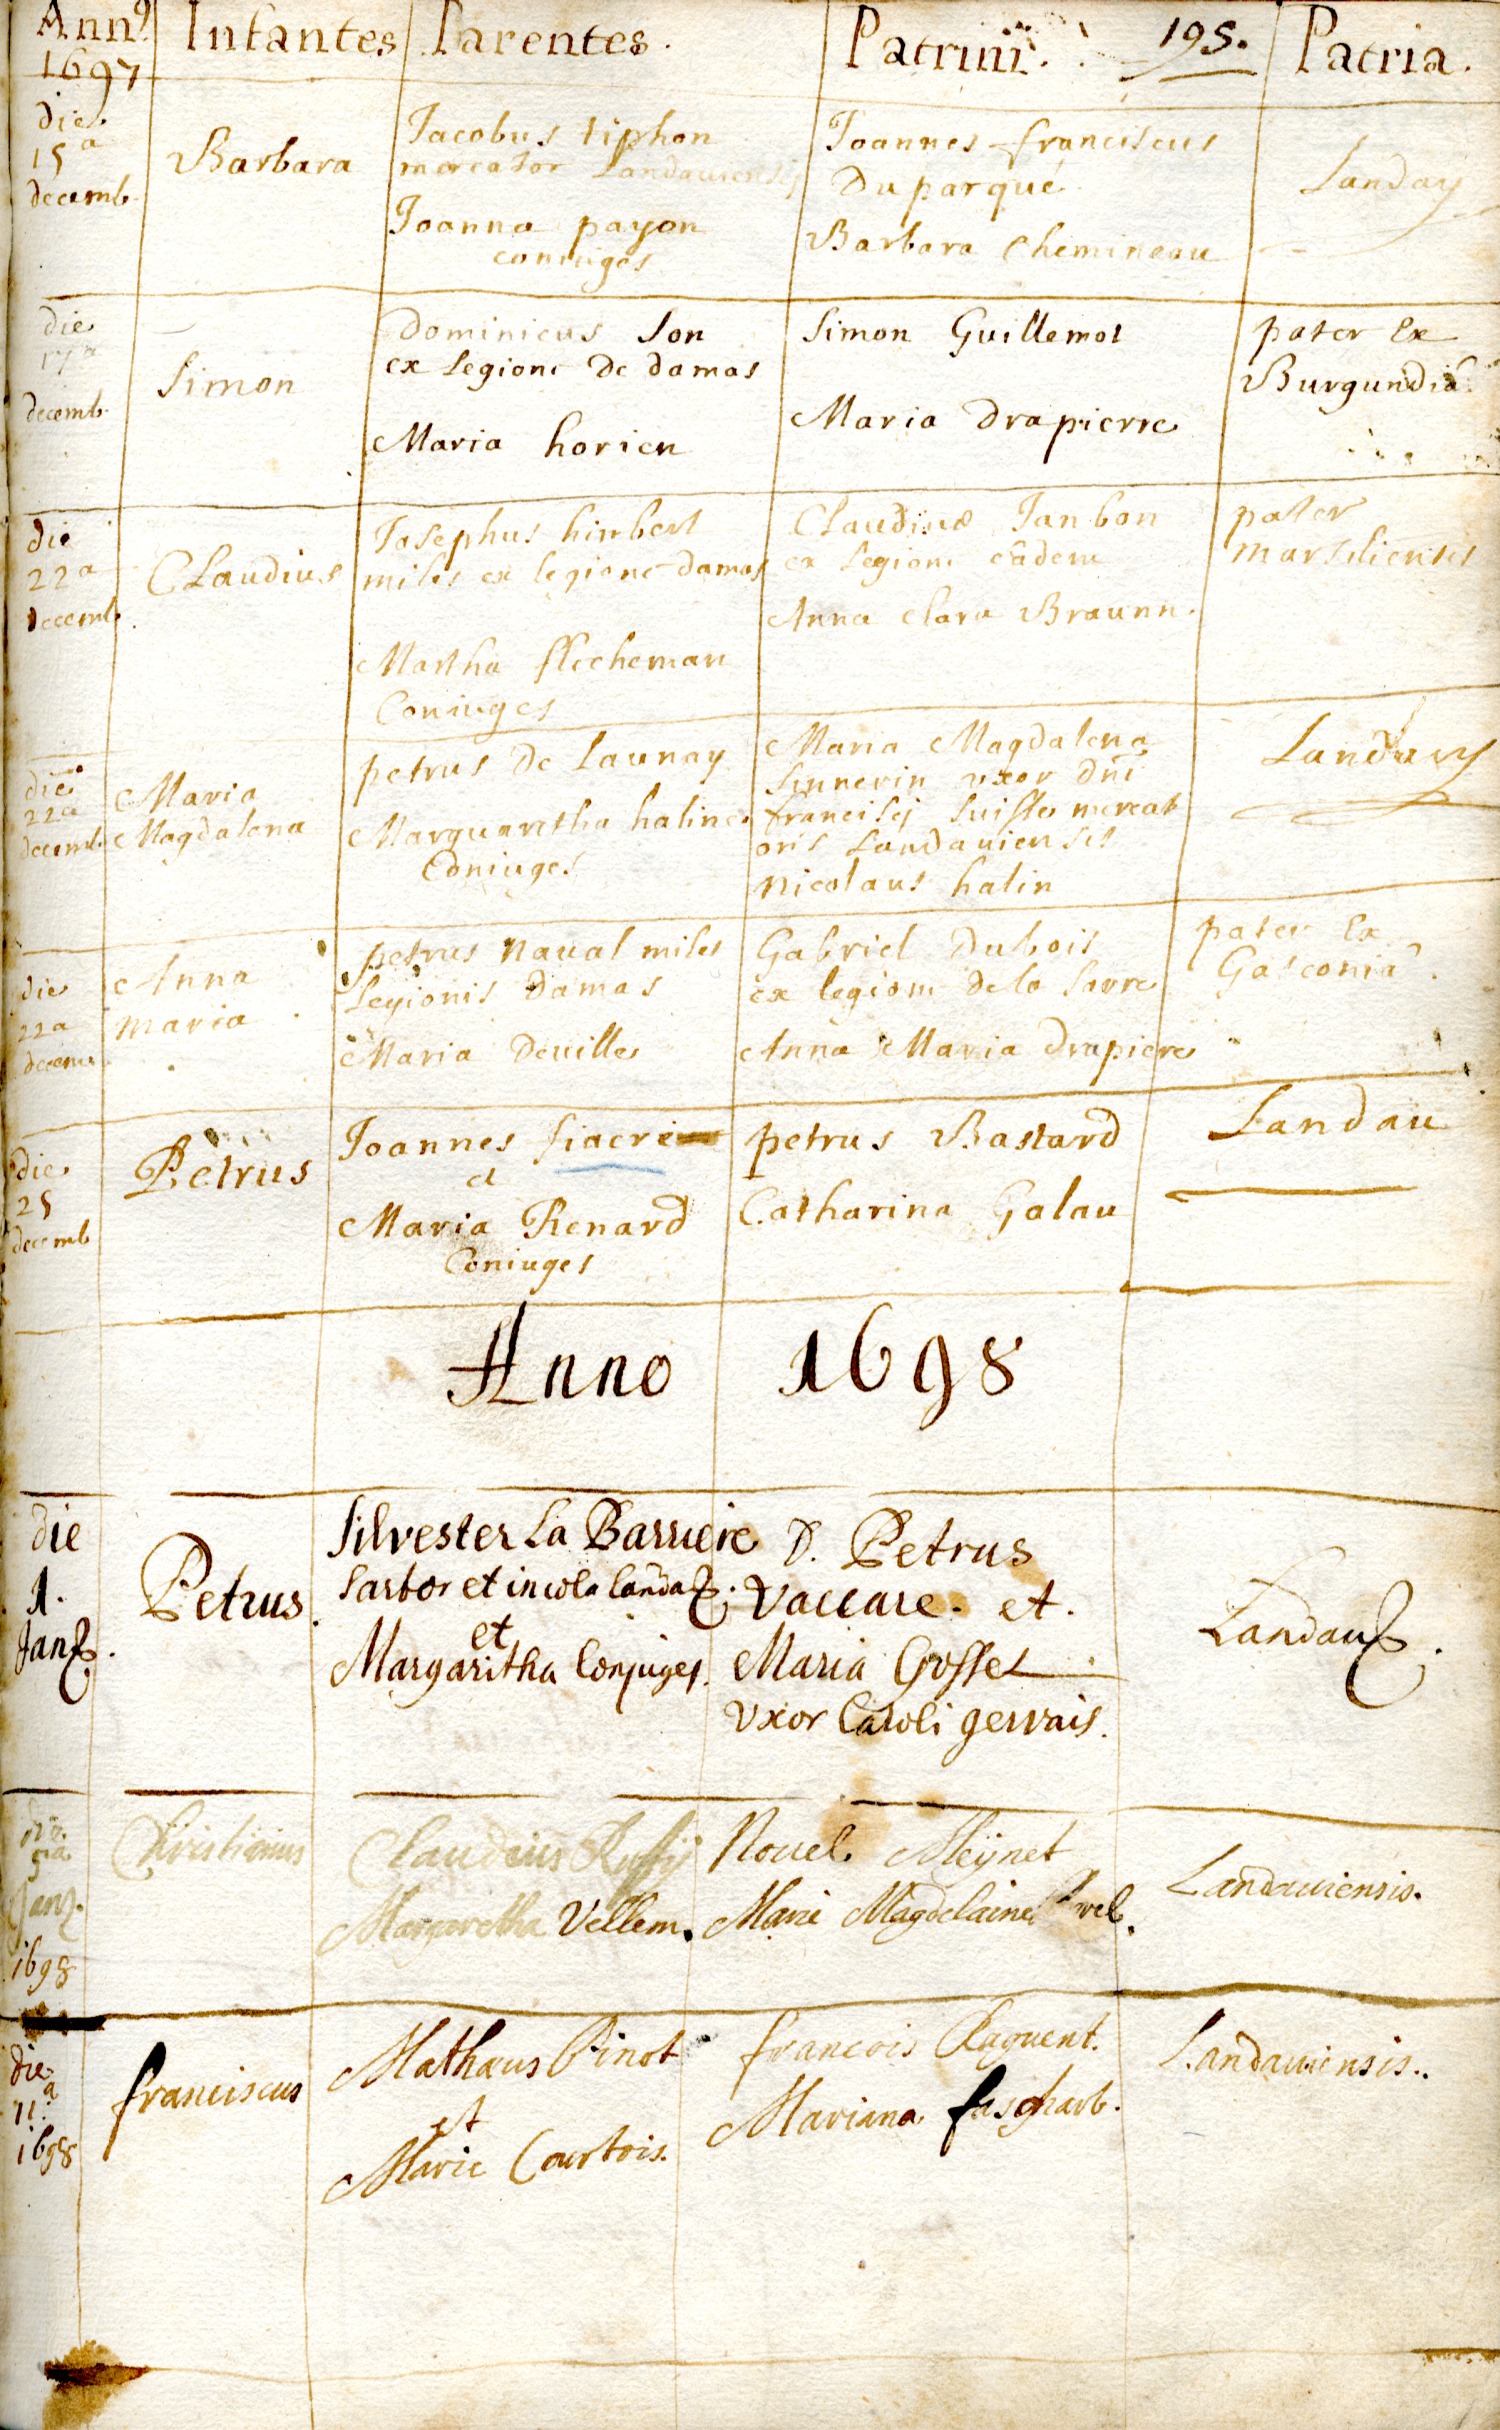 Anno Infantes Parentes. Patrini. 195. Patria.
1697
die
15a
decemb.
Barbara
Jacobus tiphon
mercator Landauiensis
Joanna payon
coniuges
Joannes franciscus
Duparqué
Barbara Chemineau
Landau
die
17a
decemb.
Simon
Dominicus Son
ex legione De damas
Maria horien
Simon Guillemot
Maria Drapierre
pater Ex
Burgundiâ
die
22a
decemb.
Claudius
Josephus himbert
miles ex legione damas
Martha flecheman
Coniuges
Claudius Janbon
ex legione eâdem
Anna Clara Braunn.
pater
marsiliensis
die
22a
decemb.
Maria
Magdalena
petrus De Launay
Marguaretha haline
Coniuges
Maria Magdalena
Sinnerin uxor dñi
francisij Suisse mercat
oris Landauiensis
Nicolaus halin
Landau
die
22a
decemb
Anna
Maria
petrus naual miles
legionis Damas
Maria Deuille
Gabriel Dubois
ex legione de la Sarre
Anna Maria Drapiere
pater Ex
Gasconiâ.
die
25
decemb
Petrus
Joannes fiacre
et
Maria Renard
Coniuges
petrus Bastard
Catharina Galau
Landau
Anno 1698
die
1.
Jan.
Petrus.
Silvester La Barriere
Sartor et incola landa.
et
Margaritha Conjuges.
D. Petrus
Vaccare. et.
Maria Gosset
Vxor Caroli gervais.
Landau.
die
5a
Jan.
1698
Christianus
Claudius Ruffÿ
Margaretha Vellem.
Nouel Meÿnet
Marie Magdelaine
Landauiensis.
die
11.a
1698
franciscus
Mathaus Pinot
et
Marie Courtois.
francois Raguent.
Mariana fasgharb.
Landauiensis.